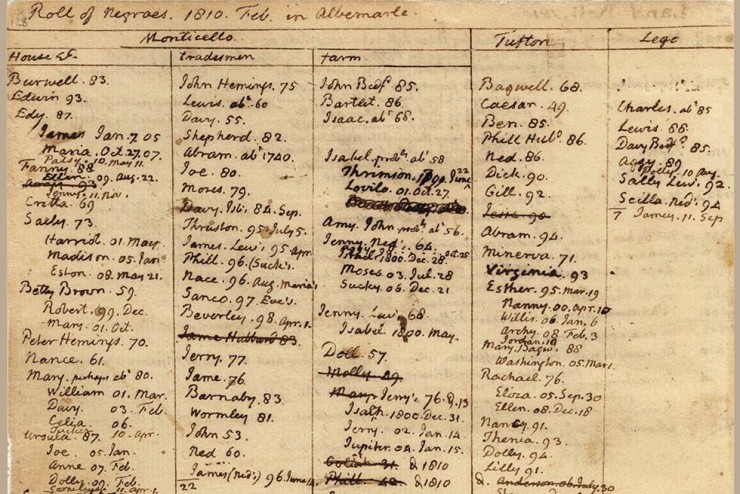 Roll of Negroes. 1810. Feb. in Albemarle.
Monticello
House &c.
Burwell. 83.
Edwin 93.
Edy. 87.
James Jan. 7. 05
Maria. Oct. 27. 07.
Patsy. 10. May 11.
Fanny. 88
Ellen. 09. Aug. 22.
Jenny. 11. Nov.
Cretia. 69
Sally. 73.
Harriot. 01. May.
Madison. 05. Jan
Eston. 08. May 21.
Betty Brown. 59.
Robert. 99. Dec.
Mary. 01. Oct.
Peter Hemings. 70.
Nance. 61.
Mary. perhaps abt. 80.
William 01. Mar.
Davy. 03. Feb.
Celia 06.
Tucker 10. Apr.
Ursula. 87.
Joe. 05. Jan.
Anne. 07. Feb.
Dolly. 09. Feb.
tradesmen
John Hemings. 75
Lewis. abt. 60
Davy. 55.
Shepherd. 82.
Abram. abt. 1740.
Joe. 80.
Moses. 79.
Davy. Isb's. 84. Sep.
Thruston. 95. July 5.
James. Lew's 95. Apr.
Phill. 96. (Suck's.
Nace. 96. Aug. Maria's
Sanco. 97. Eve's.
Beverley. 98. Apr. 1.
Jame Hubbard 83
Jerry. 77.
Jame. 76.
Barnaby. 83.
Wormley 81.
John 53.
Ned 60.
James (Ned's) 96. June
22
farm
John Bedfd. 85.
Bartlet. 86.
Isaac. abt. 68.
Isabel. probly. abt. 58
Thrimson. 99. June 22
Lovilo. 01. Oct. 27
Amy. John probly. abt. 56.
Jenny. Ned's. 64.
Israel 1800. Dec. 28.
Moses. 03. Jul. 28
Sucky. 06. Dec. 21
Jenny. Lew's. 68.
Isabel 1800. May.
Doll. 57.
Molly. 49
Mary. Jerry's 76.
Isaiah. 1800. Dec. 31.
Jerry. 02. Jan. 14.
Jupiter. 04. Jan. 15.
Goliah. 31. d. 1810
Phill. 42. d. 1810
Tufton
Bagwell. 68.
Caesar. 49.
Ben. 85.
Phill Hubd. 86.
Ned. 86.
Dick. 90.
Gill. 92.
Jesse. 90
Abram. 94.
Minerva. 71.
Virginia. 93
Esther. 95. Mar. 19
Nanny. 00. Apr. 10
Willis. 06. Jan. 6
Archy. 08 Feb. 3
Jordan. 10
Mary. Bagw's. 88
Washington. 05. Mar. 1.
Rachael. 76.
Eloza. 05. Sep. 30
Ellen. 08. Dec. 18
Nancy. 91.
Thenia. 93.
Dolly. 94.
Lilly. 91.
d. Anderson. 06. July. 30
Lego
Charles. abt. 85
Lewis. 88.
Davy Bedfd. 85.
Aggy. 89
Polly. 10. Aug.
Sally Lew's. 92.
Scilla. Ned's. 94
7 James. 11. Sep